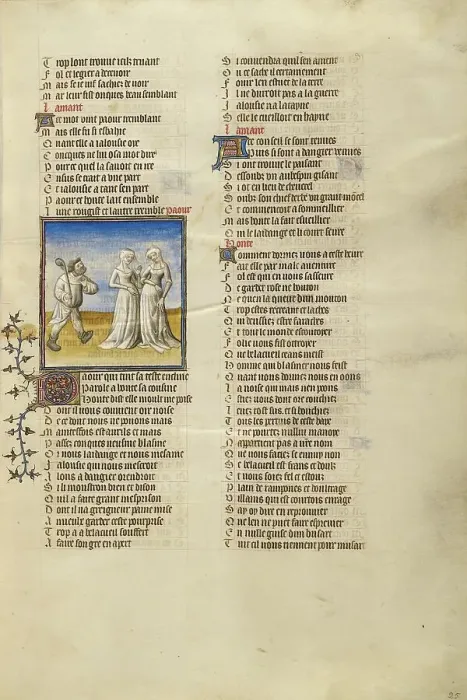 Trop lont trouue icilz truant
Fol et legier a deceuoir
Mais se ie uif sachiez de voir
Mar leur fist onques beau semblant
Lamant
A ce mot vint paour tremblant
Mais elle fu si esbahie
Quant elle a ialousie oye
Conques ne lui osa mot dire
Pource quel la sauoit en ire
Ensus se trait a vne part
Et ialousie a tant sen part
Paour et honte lait ensemble
Lune rougist et lautre tremble paour
Paour qui tint la teste encline
Parole a honte sa cousine
Honte dist elle moult me poise
Dont il nous conuient oir noise
De ce dont nous ne pouons mais
Maintes fois est auril et mais
Passez conques neusmes blasme
Or nous laidange et nous mesame
Jalousie qui nous mescroit
Alons a dangier orendroit
Si li monstrons bien et dison
Quil a faire grant mesprison
Dont il na greigneur paine mise
A mieulx garder ceste pourprise
Trop a a belacueil souffert
A faire son gre en apert
Si conuendra quil sen ament
Ou ce sache il certainement
Fouir len estuet de la terre
Il ne durroit pas a la guerre
Jalousie na latayne
Selle le cueilloit en hayne
Lamant
A ce conseil se sont tenues
Puis si sont a dangier venues
Si ont trouue le paisant
Dessoubz vn aubespin gisant
Sot en lieu de cheuecel
Soubz son chief derbe vn grant moncel
Et commencoit a sommeillier
Mais honte la fait esueillier
Qui le laidange et li court seure
Honte
Comment dormez uous a ceste heure
Fait elle par male auenture
Fol est qui en uous sasseure
De garder rose ne bouton
Ne quen la queue dun mouton
Trop estes recreant et lasches
Qui deussiez estre farasches
Et tout le monde estoutoyer
Folie uous fist ottroyer
Que belacueil ceans meist
Homme qui blasmer nous feist
Quant uous dormez nous en oons
La noise qui mais nen poons
Estiez uous ore couchiez
Leuez tost sus et si bouchiez
Tous les pertuis de ceste haye
Et ne portez nullui manaye
Il nappartient pas a vostre nom
Que uous faciez se ennuy non
Se belacueil est frans et doulz
Et uous soiez fel et estouz
Plain de rampones et doultrage
Villains qui est courtois enrage
Ce ay oy dire en reprouuier
Que len ne puet faire espreuier
En nulle guise dun busart
Tuit cil uous tiennent pour musart